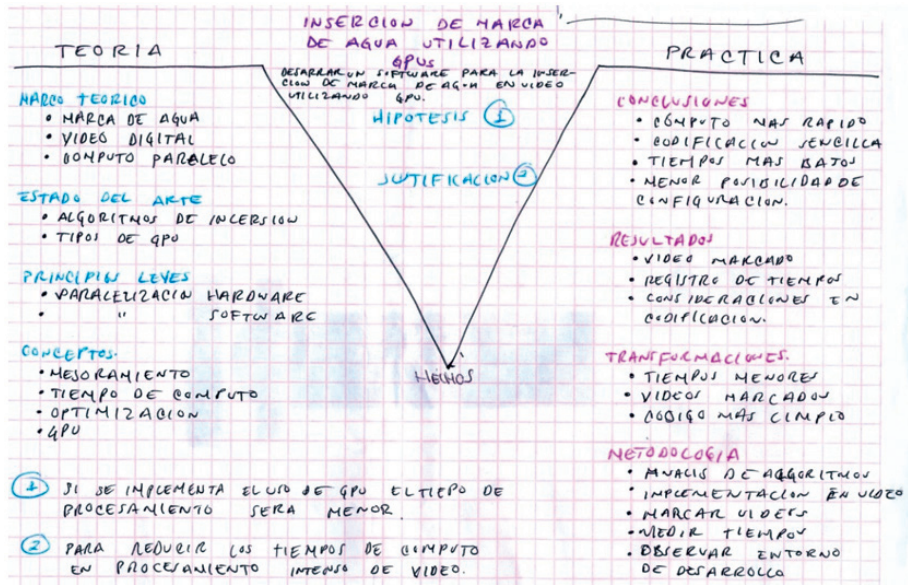 INSERCION DE MARCA
DE AGUA UTILIZANDO
GPUS
DESARRAR UN SOFTWARE PARA LA INSER-
CION DE MARCA DE AGUA EN VIDEO
UTILIZANDO GPU.
HIPOTESIS 1
JUTIFICACION 2
HECHOS
TEORIA
MARCO TEORICO
• MARCA DE AGUA
• VIDEO DIGITAL
• COMPUTO PARALELO
ESTADO DEL ARTE
• ALGORITMOS DE INCERSION
• TIPOS DE GPU
PRINCIPIOS LEYES
• PARALELIZACIN HARDWARE
• " SOFTWARE
CONCEPTOS.
• MEJORAMIENTO
• TIEMPO DE COMPUTO
• OPTIMIZACION
• GPU
1 SI SE IMPLEMENTA EL USO DE GPU EL TIEPO DE
PROCESAMIENTO SERA MENOR.
2 PARA REDUCIR LOS TIEMPOS DE COMPUTO
EN PROCESAMIENTO INTENSO DE VIDEO.
PRACTICA
CONCLUSIONES
• COMPUTO MAS RAPIDO
• CODIFICACION SENCILLA
• TIEMPOS MAS BAJOS
• MENOR POSIBILIDAD DE
CONFIGURACION.
RESULTADOS
• VIDEO MARCADO
• REGISTRO DE TIEMPOS
• CONSIDERACIONES EN
CODIFICACION.
TRANSFORMACIONES.
• TIEMPOS MENORES
• VIDEOS MARCADOS
• CODIGO MAS CIMPLO
METODOLOGIA
• ANALIS DE ALGORITMOS
• IMPLEMENTACION EN VIDEO
• MARCAR VIDEOS
• MEDIR TIEMPOS
• OBSERVAR ENTORNO
DE DESARROLLO